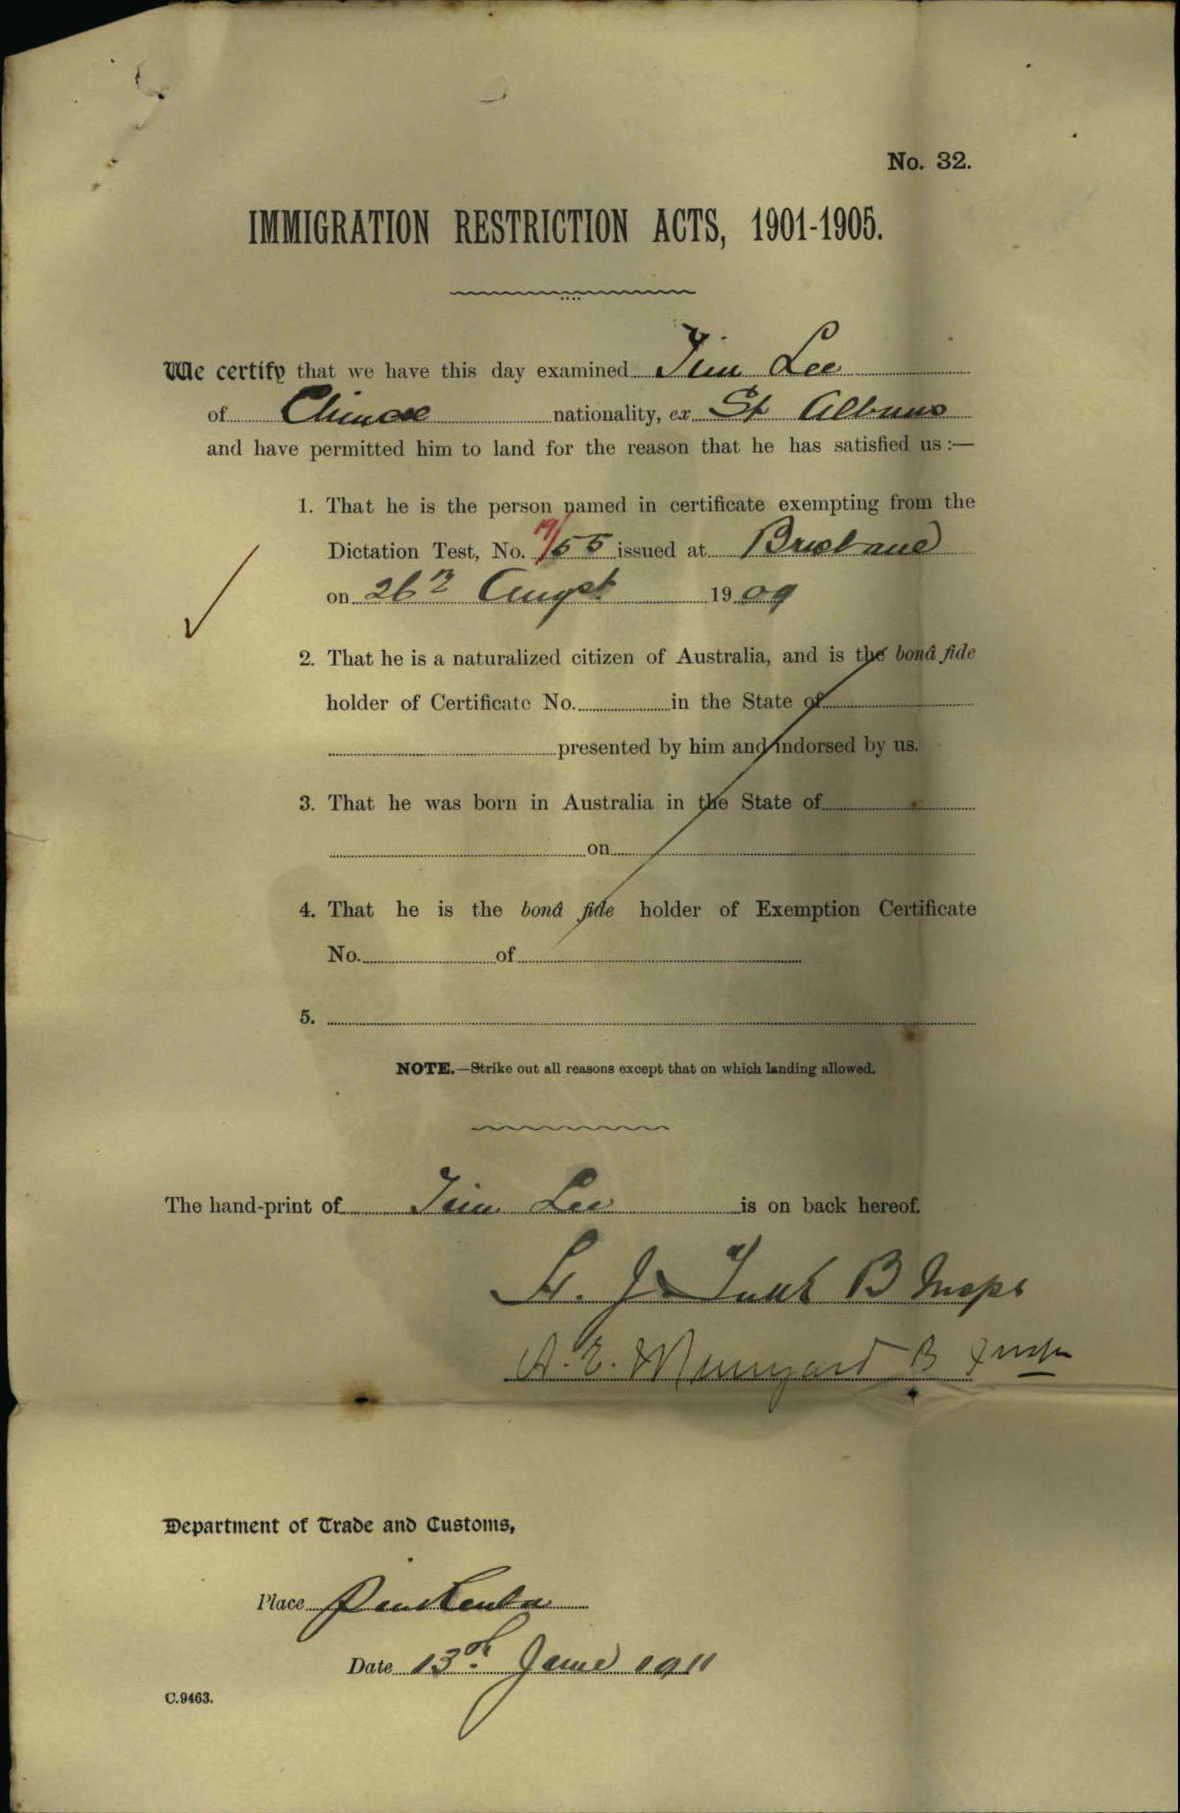 No. 32.
IMMIGRATION RESTRICTION ACTS, 1901-1905.
We certify that we have this day examined Lee
of Chinese nationality, ex St Albans
and have permitted him to land for the reason that he has satisfied us :—
1. That he is the person named in certificate exempting from the
Dictation Test, No. 19/55 issued at Brisbane
on 26th Augst 1909
2. That he is a naturalized citizen of Australia, and is the bonâ fide
holder of Certificate No. in the State of
presented by him and indorsed by us.
3. That he was born in Australia in the State of
on
4. That he is the bonâ fide holder of Exemption Certificate
No. of
5.
NOTE.—Strike out all reasons except that on which landing allowed.
The hand-print of Lee is on back hereof.
J B Inspr
A. E. B Inspr
Department of Trade and Customs,
Place Pinkenba
Date 13th June 1911
C.9463.